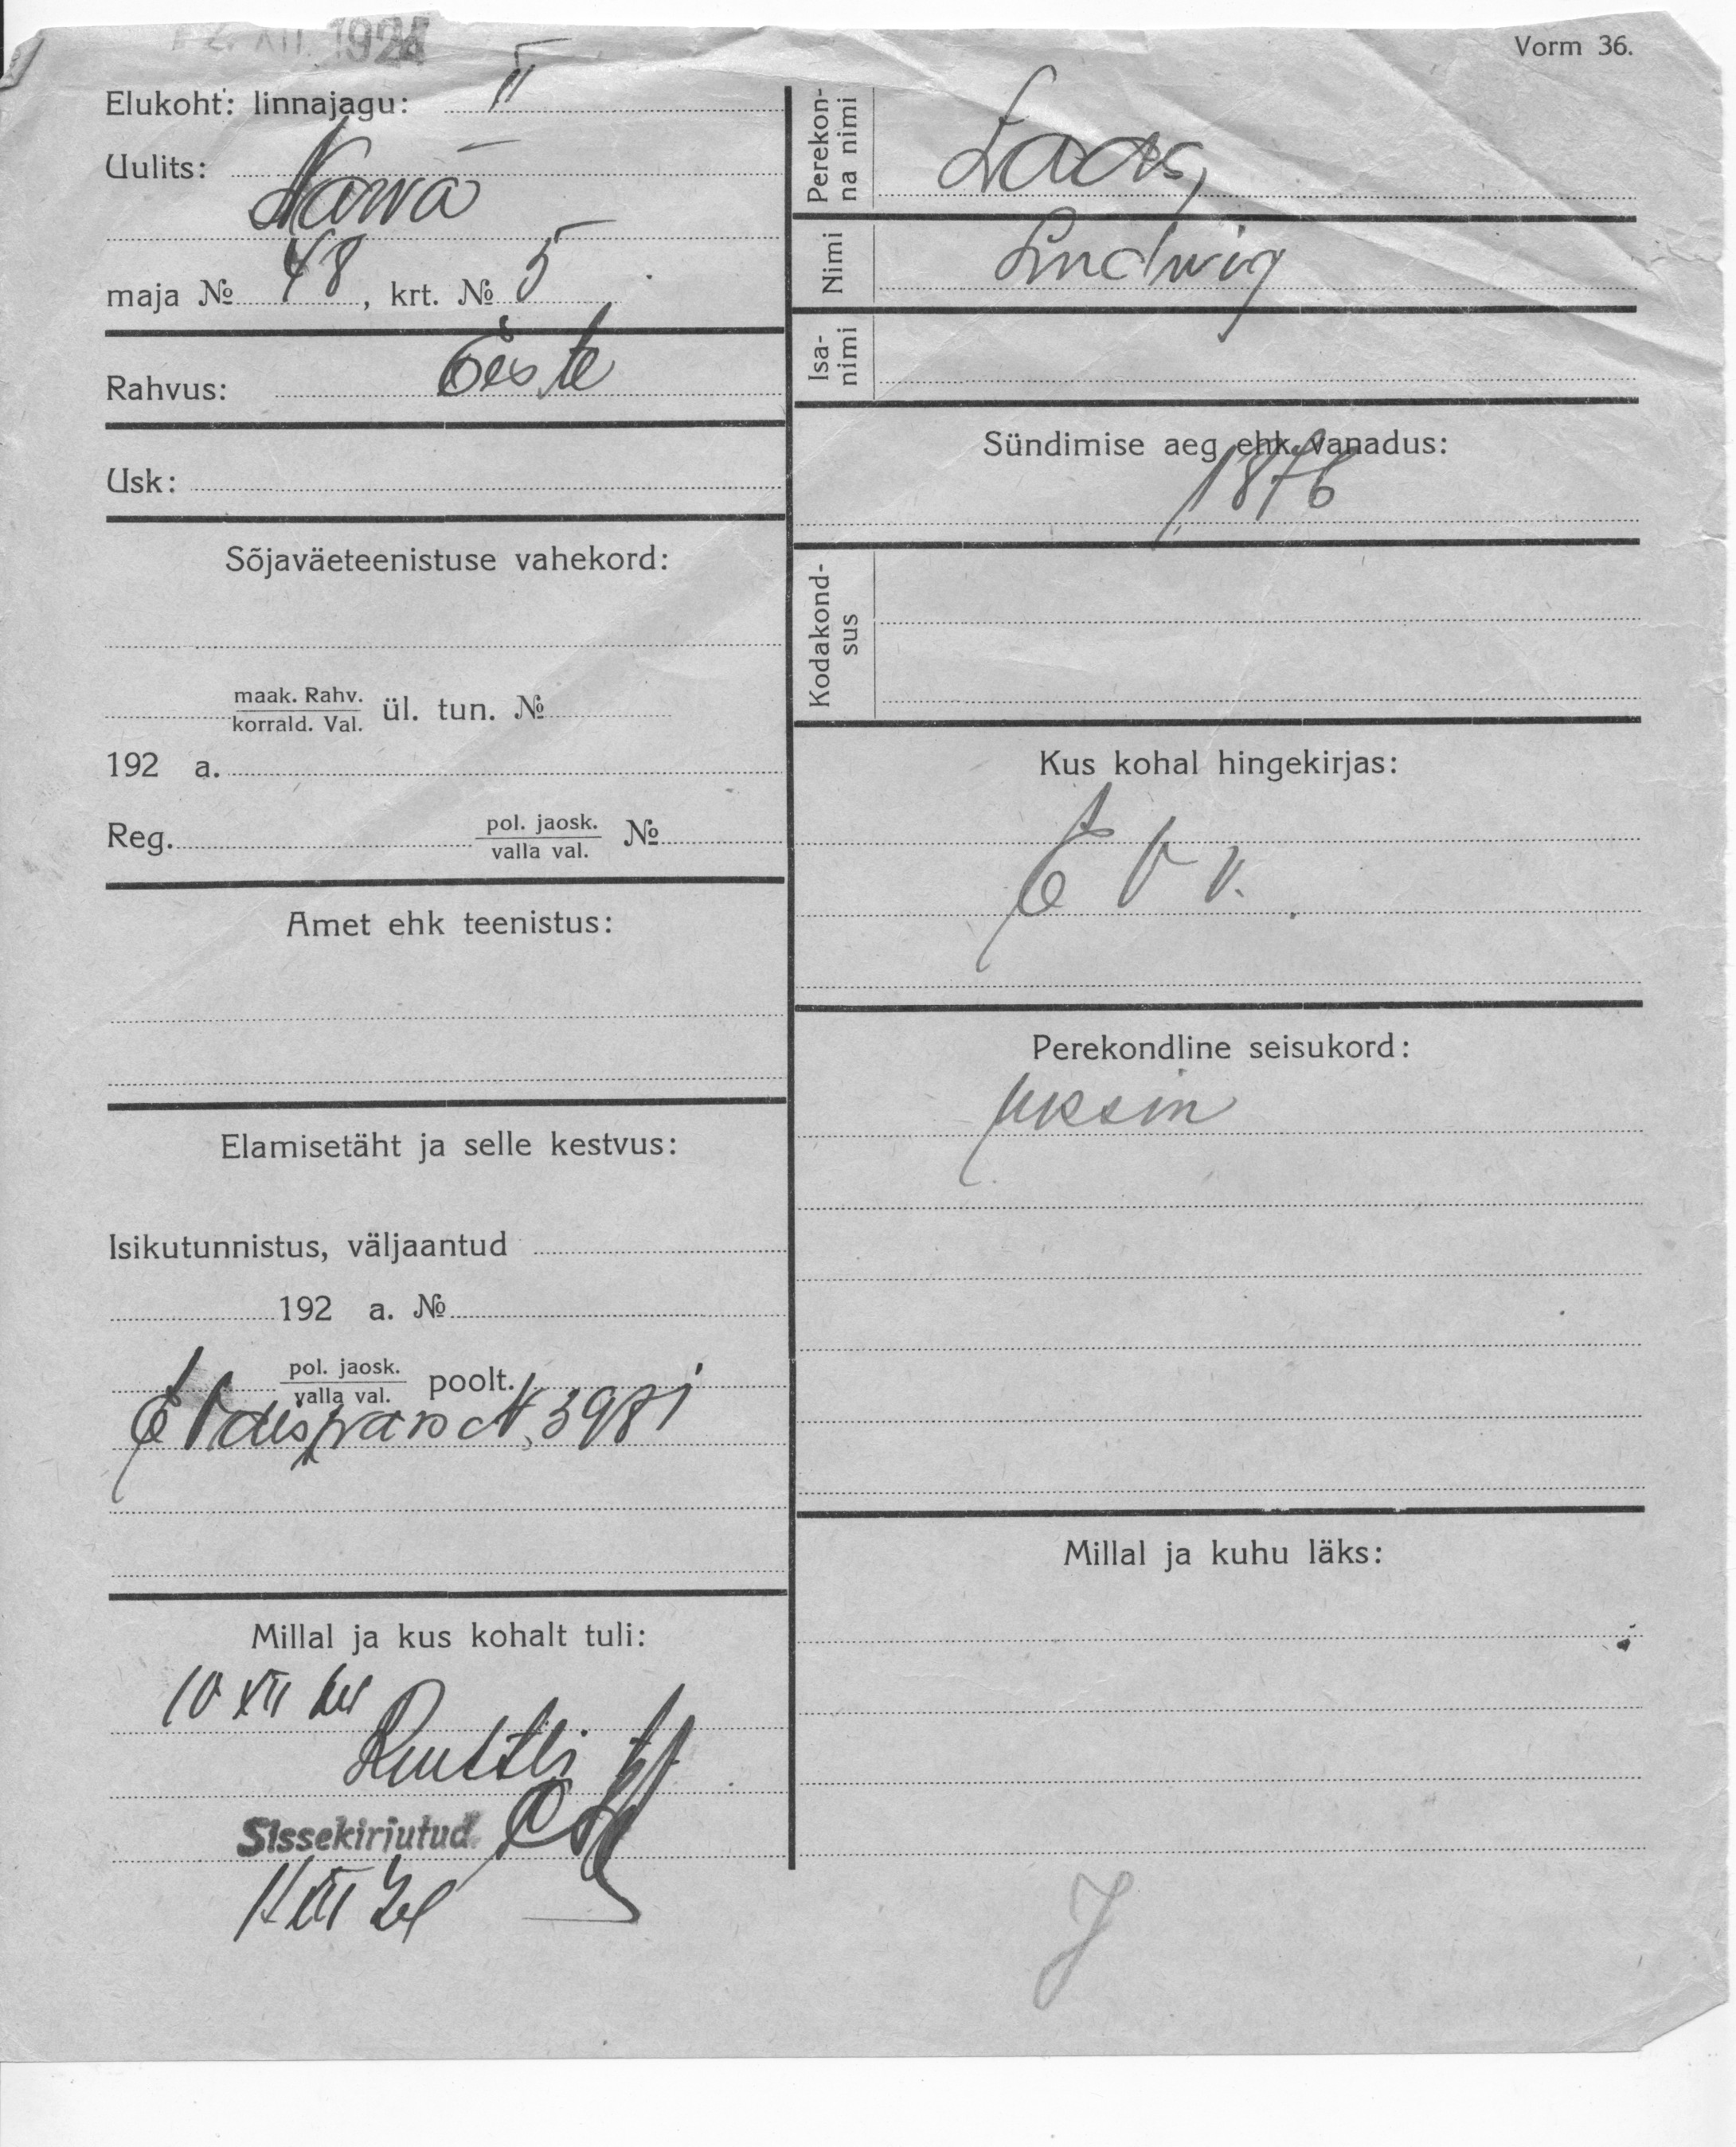 XII. 1924
Vorm 36.
Elukoht: linnajagu: II
Uulits:
Narva
maja № 48, krt. № 5
Rahvus: Eesti
Usk:
Sõjaväeteenistuse vahekord:
maak. Rahv.
korrald. Val. ül. tun. №
192 a.
Reg. pol. jaosk.
valla val. №
Amet ehk teenistus:
Elamisetäht ja selle kestvus:
Isikutunnistus, väljaantud
192 a. №
pol. jaosk.
valla val. poolt.
N 3981
Millal ja kus kohalt tuli:
10 XII 24
Sissekirjutud
11 XII 24
Perekon-
na nimi
Laas,
Nimi Ludwig
Isa-
nimi
Sündimise aeg ehk vanadus:
1876
Kodakond-
sus
Kus kohal hingekirjas:
E V V.
Perekondline seisukord:
üksin
Millal ja kuhu läks:
J